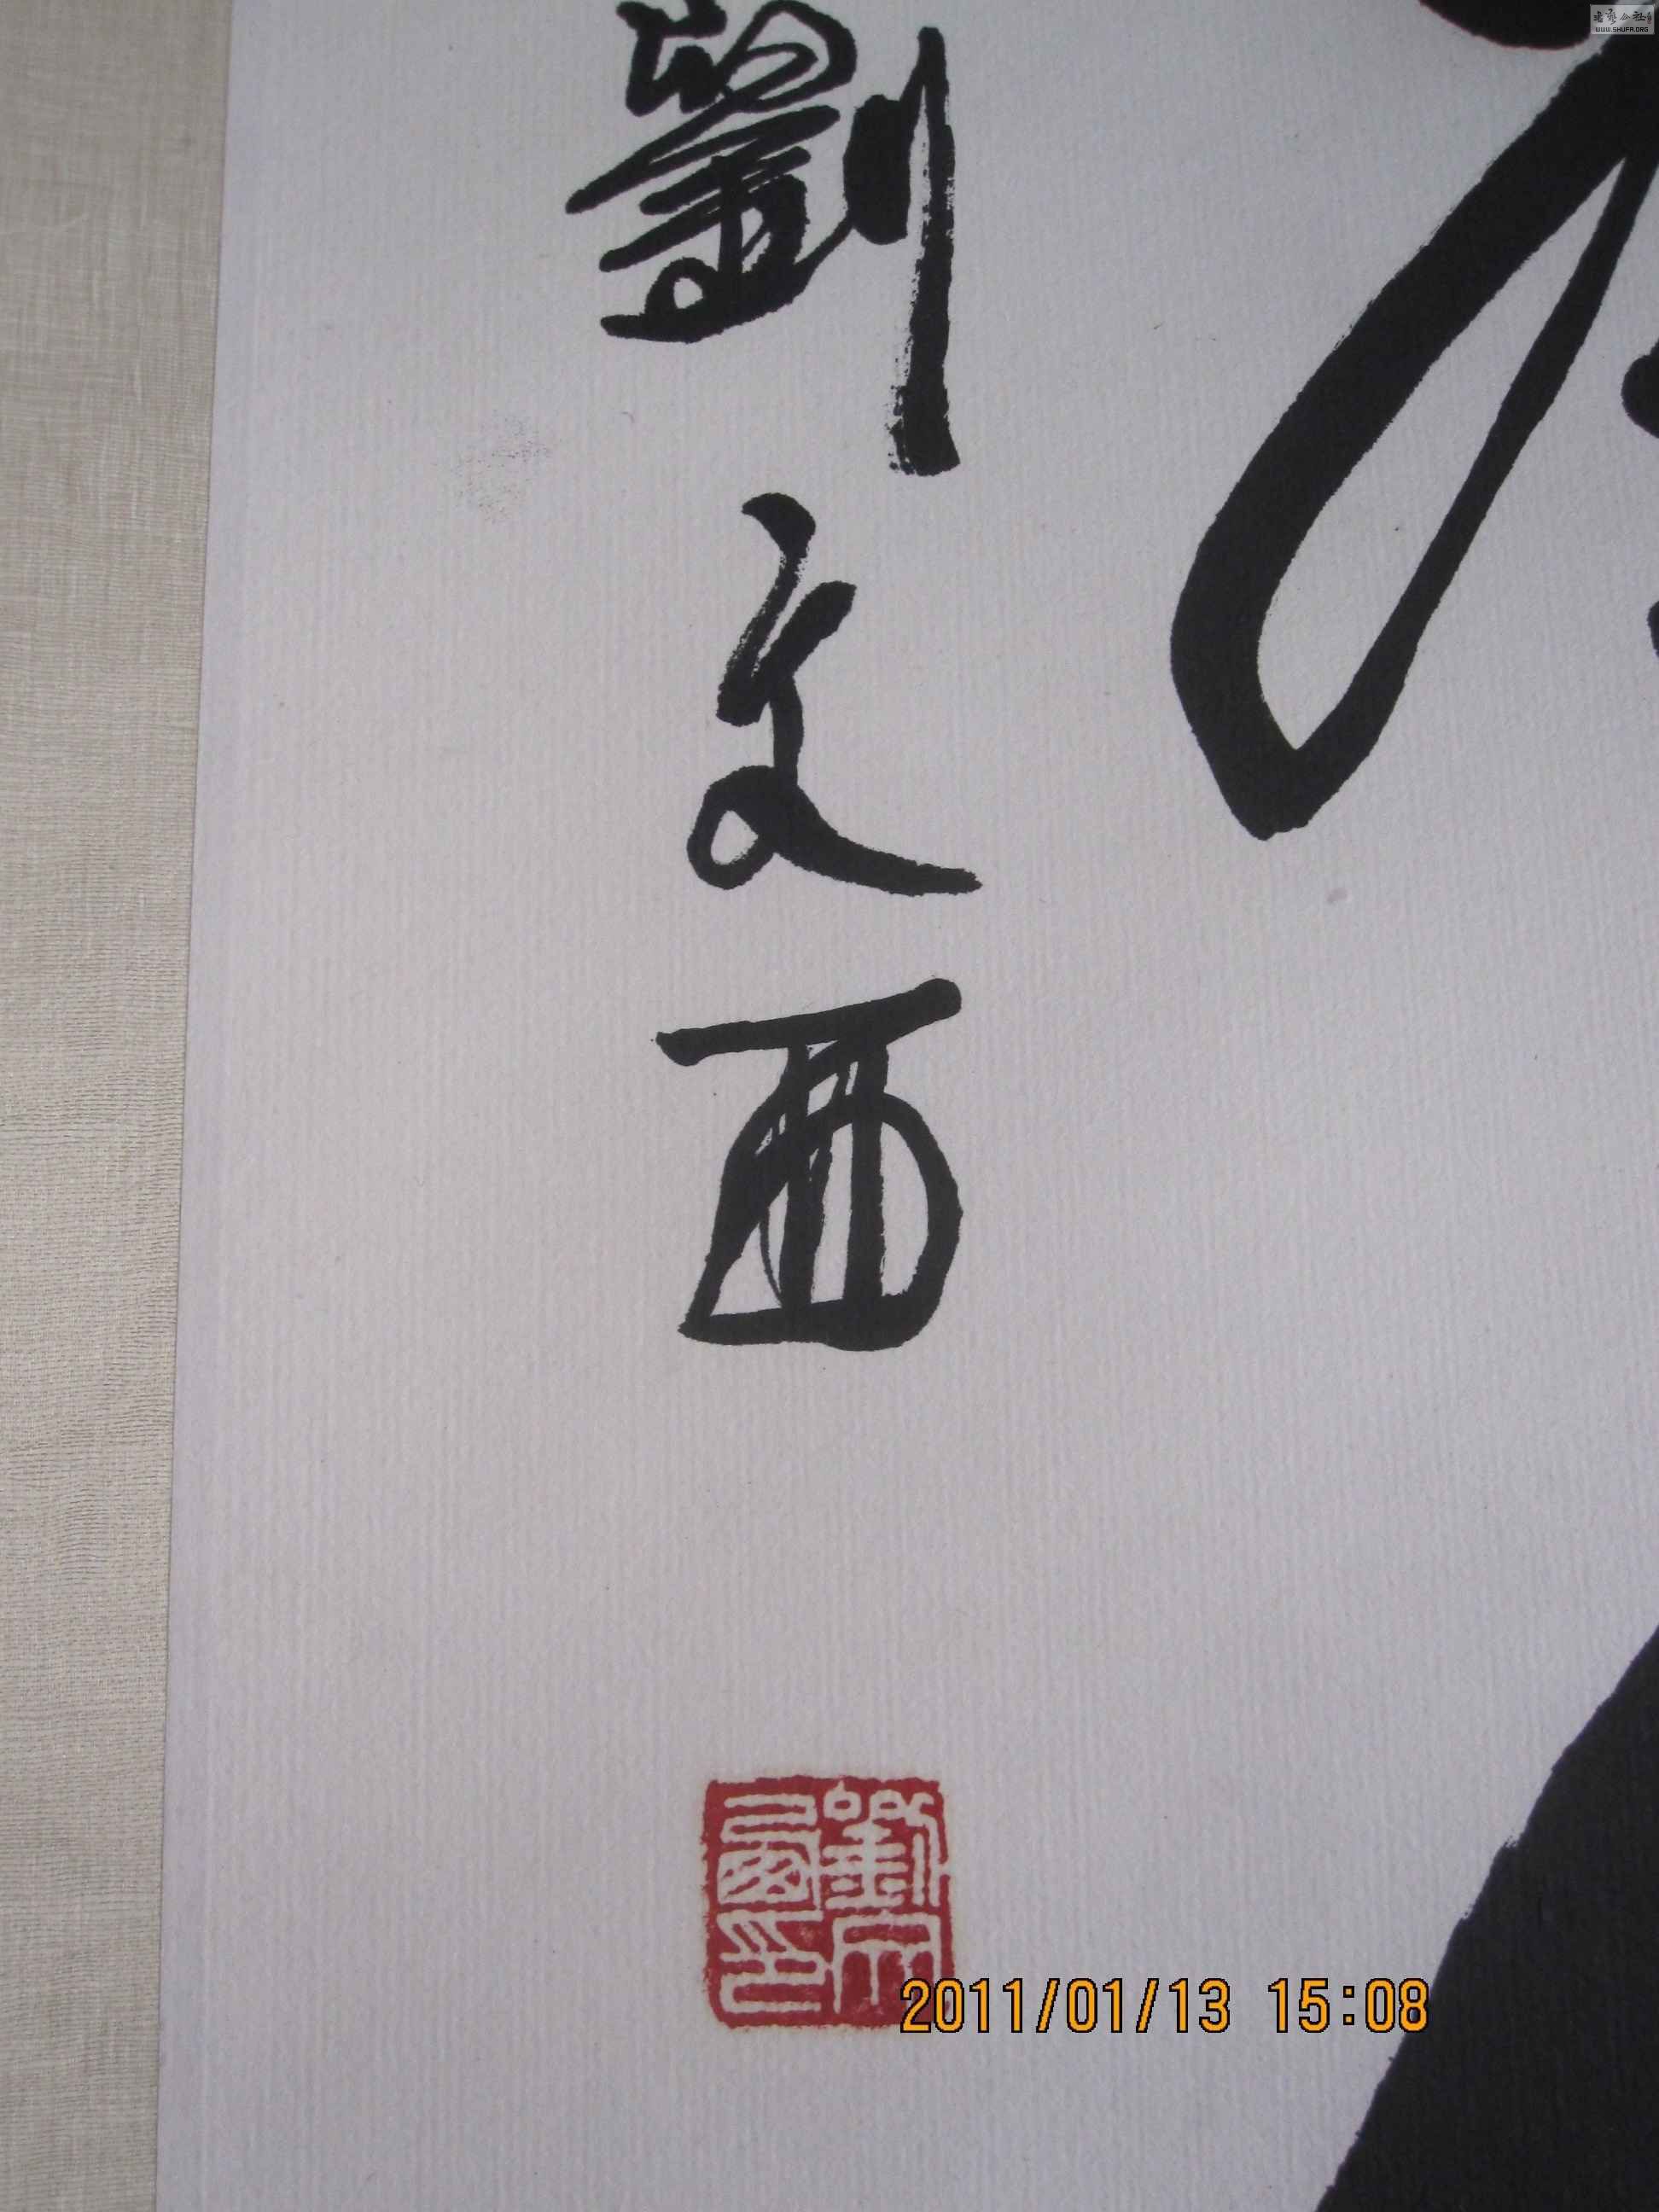 劉文西
劉文西印
2011/01/13 15:08
WWW.SHUFA.ORG